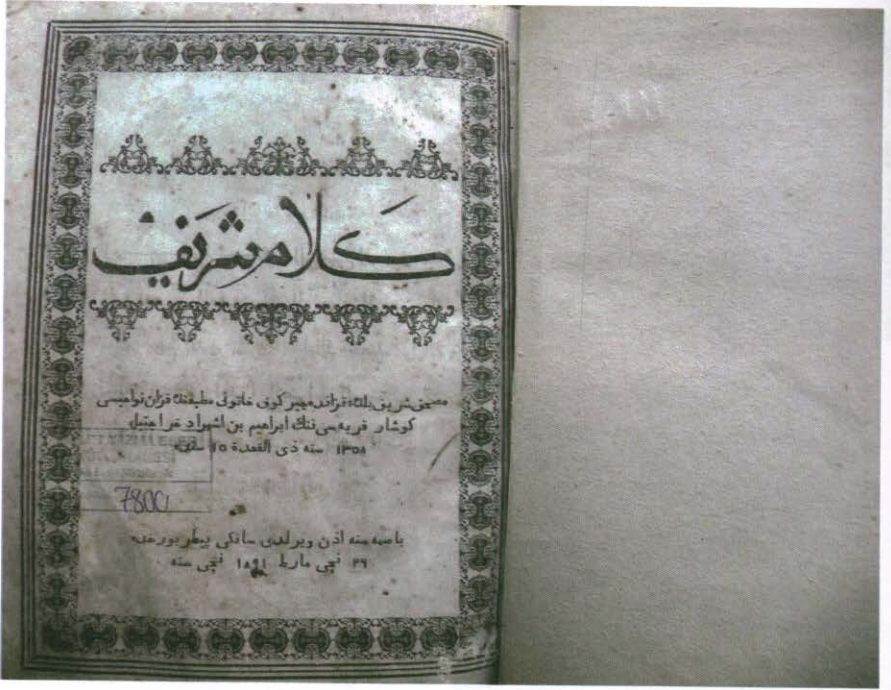 كلام شريف
مصحف شريف بلدۀ قزانده چيركوف خاتوننڭ مطبعه‌سنده قزان نواحيسى
كوشار قريه سى ننك ابراهيم بن اشمراد خراجتيله
١٣٠٨ سنه ذى القعدة ١٥ سنده
7800
باصمه سنه اذن ويرلدى سانكى پيطربورخده
٢٦ نچى مارط ١٨٩١ نچى سنه